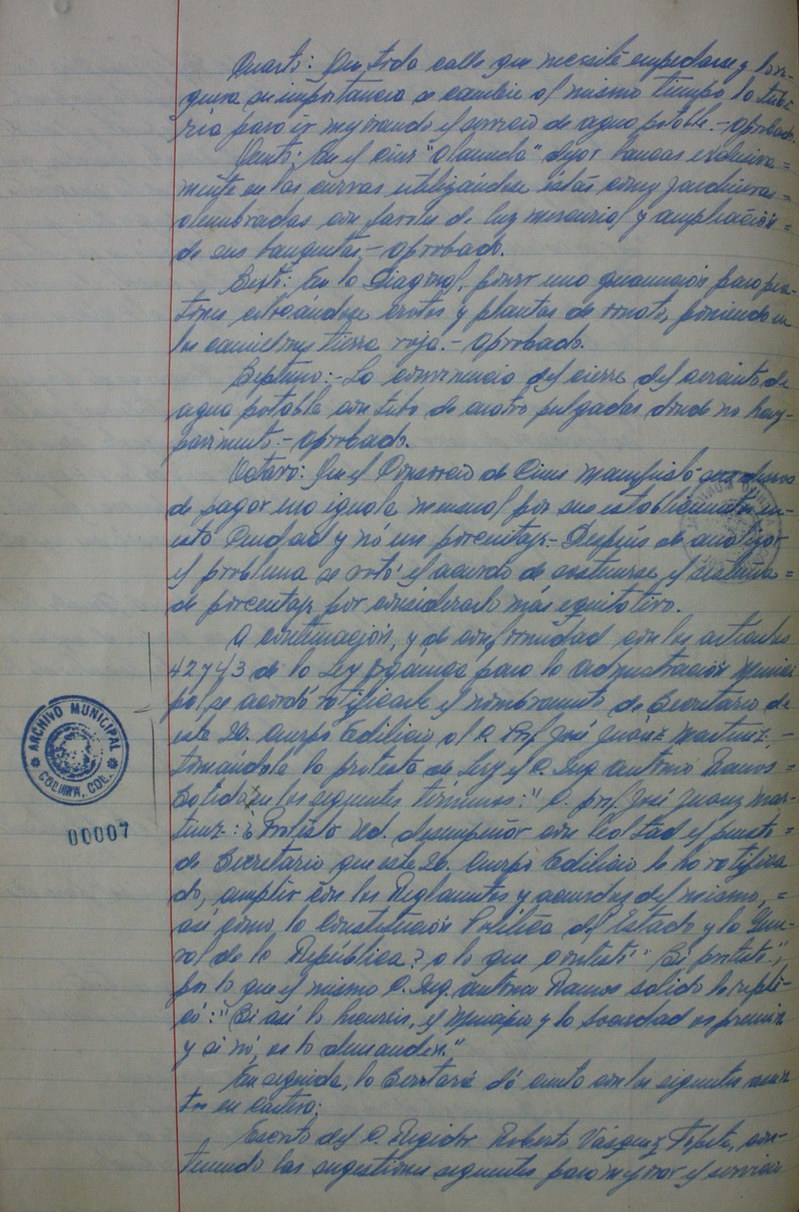 Cuarto: Que toda calle que necesite empedarse y lo re-
quiera su importancia se cambie al mismo tiempo la tube-
ría para ir mejorando el servicio de agua potable.- Aprobado.
Quinto: En el cine "Alameda" dejar bancas exclusiva=
mente en las curvas utilizándose éstas como jardineras=
alumbradas con faroles de luz mercurial y ampliación=
de sus banquetas,- Aprobado.
Sexto: En la Diagonal, poner una guarnición para pea-
tones y plantas de ornato, poniendo en
los camellones tierra roja.- Aprobado.
Séptimo:- La conveniencia del cierre del circuito de
agua potable con tubo de cuatro pulgadas donde no hay-
pavimento.- Aprobado.
Octavo: Que el de Cines manifestó que deseaba
de pagar una iguala mensual por sus establecimientos en-
esta Ciudad y nó un porcentaje.- Después de analizar
el problema se votó el acuerdo de sostenerse el sistema=
de porcentaje por considerarlo más equitativo.
A continuación, y de conformidad con los artículos
42 y 43 de la Ley Orgánica para la administración Munici-
pal, se acordó ratificarle el nombramiento de Secretario de
este H. Cuerpo Edilicio al C. Prof. José Juárez Martínez,-
tomándole la protesta de Ley el C. Ing. Antonio Ramos-
Salido en los siguientes términos:" C. prof. José Juárez Mar-
tínez: ¿Protesta Ud. desempeñar con lealtad el puesto-
de Secretario que este H. Cuerpo Edilicio le ha ratifica
do, cumplir con los Reglamentos y acuerdos del mismo,=
así como la Constitución Política del Estado y la Gene-
ral de la República? a lo que contestó "Sí protesto.",
por lo que el mismo C. Ing. Antonio Ramos Salido le repli-
có: "Si así lo hiciereis, el Municipio y la Sociedad os premie
y si nó, os lo demanden."
En seguida, la Secretaría dá cuenta con los siguientes asun-
tos en cartera:
Escrito del C. Regidor Roberto Vázquez Tejeda, con-
teniendo las sugestiones siguientes para mejorar el servicio
ARCHIVO MUNICIPAL
COLIMA, COL.
00007